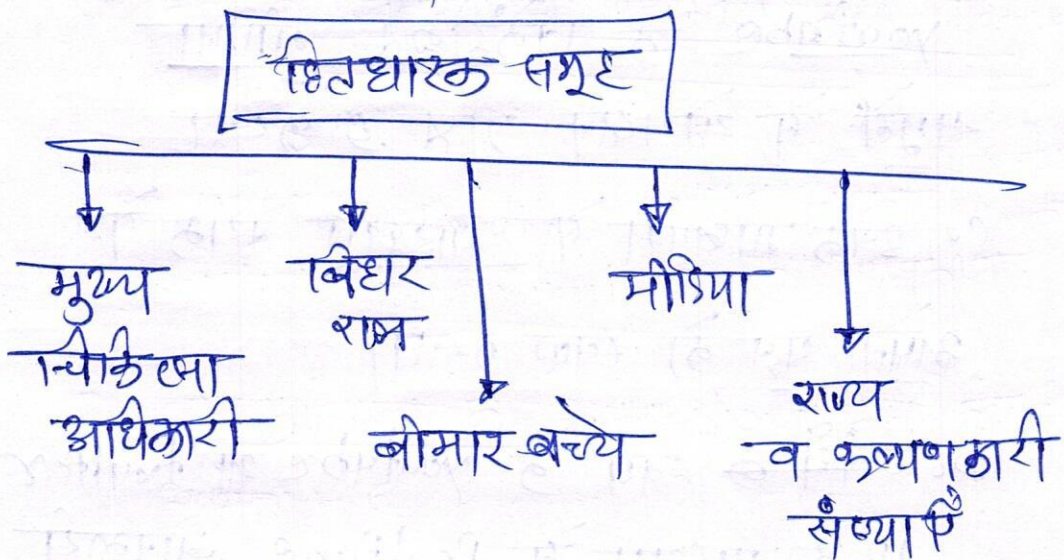 हितधारक समूह
मुख्य
चिकित्सा
अधिकारी
बिहार
राज्य
बीमार बच्चे
मीडिया
राज्य
व कल्याणकारी
संस्थाएँ